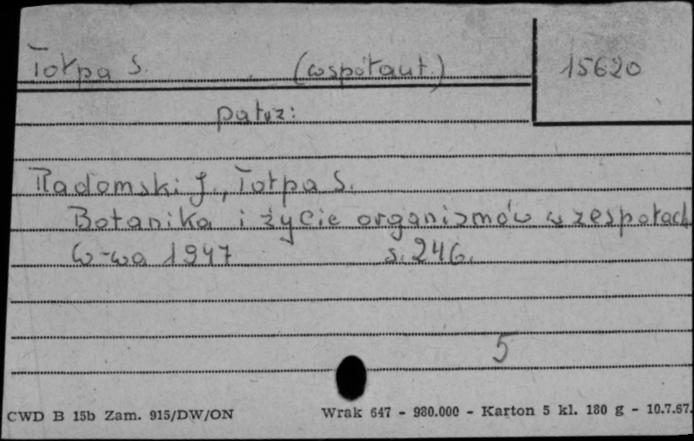 Tołpa S. (współaut.) 15620
patrz:
Radomski J., Tołpa S.
Botanika i życie organizmów w zespołach
W-wa 1947 s. 246.
5
CWD B 15b Zam. 915/DW/ON Wrak 647 - 980.000 - Karton 5 kl. 180 g - 10.7.67.